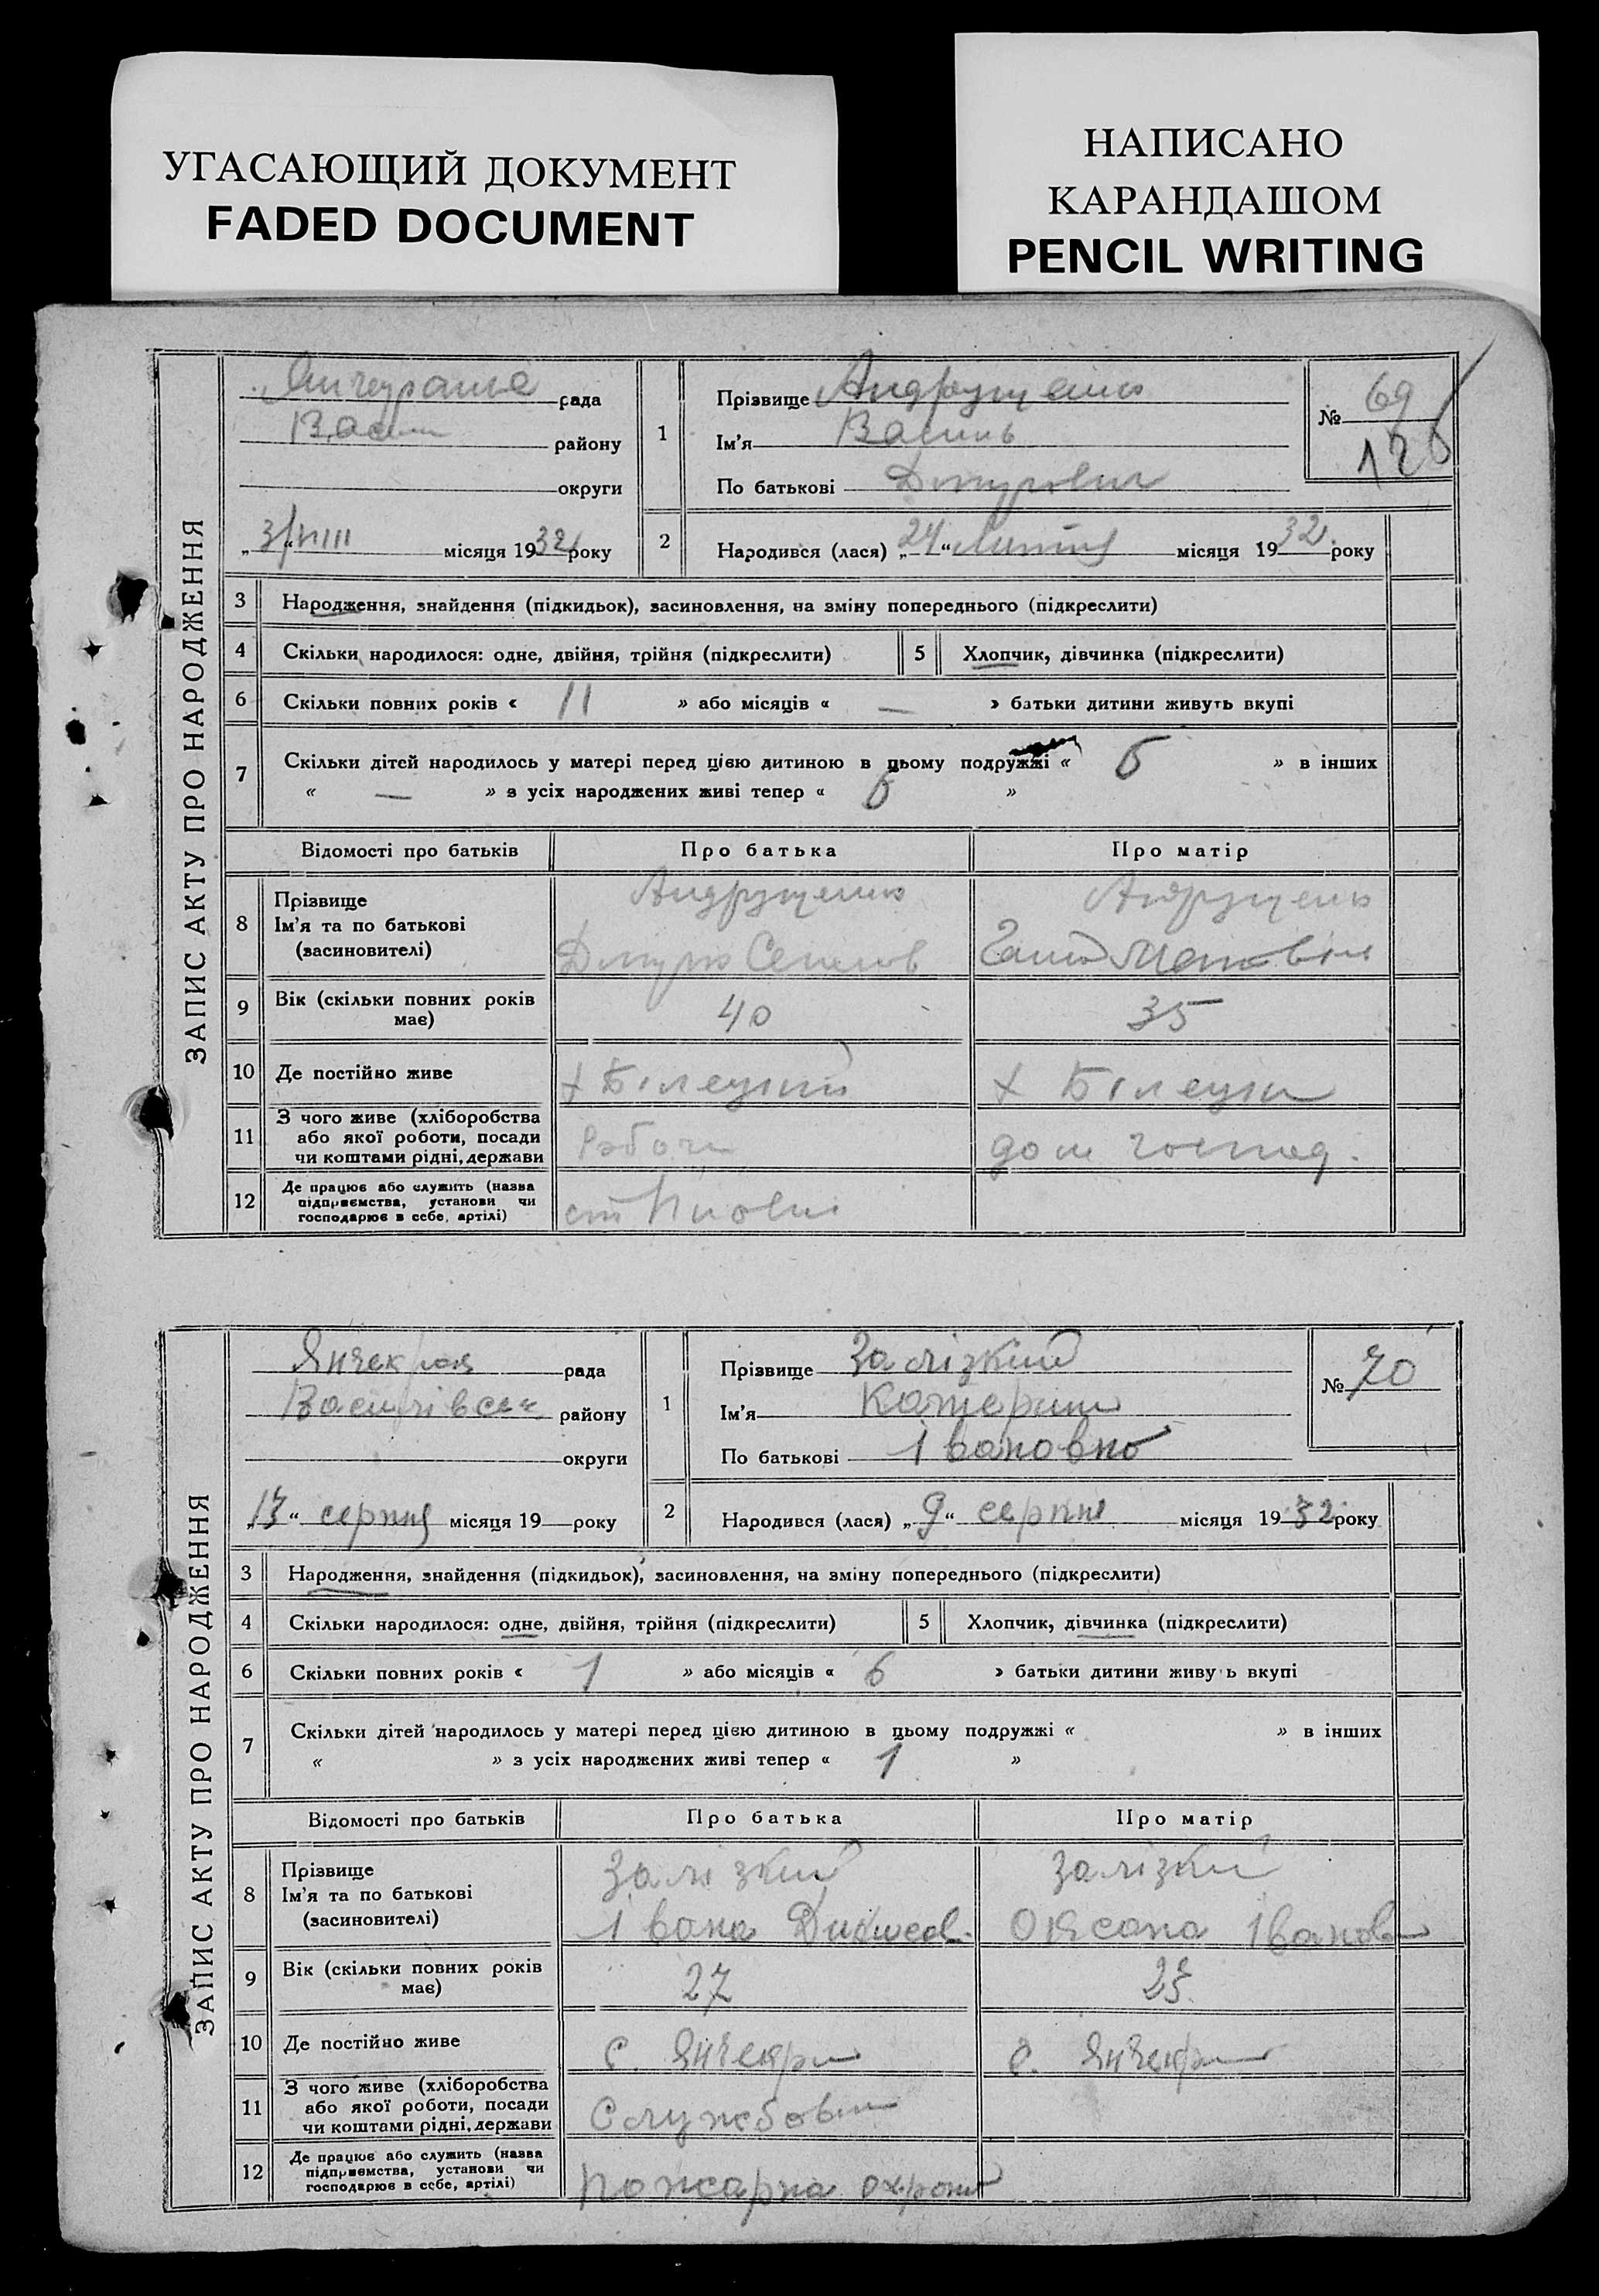 УГАСАЮЩИЙ ДОКУМЕНТ
FADED DOCUMENT
НАПИСАНО
КАРАНДАШОМ
PENCIL WRITING
ЗАПИС АКТУ ПРО НАРОДЖЕННЯ
рада
району
округи
місяця 1932 року
1
Прізвище Андрущенко
Ім'я Василь
По батькові Дмитрович
№ 69
126
2
Народився (лася) „24“ лютня місяця 1932 року
3 Народження, знайдення (підкидьок), засиновлення, на зміну попереднього (підкреслити)
4 Скільки народилося: одне, двійня, трійня (підкреслити)
5 Хлопчик, дівчинка (підкреслити)
6 Скільки повних років « 11 » або місяців « — » батьки дитини живуть вкупі
7 Скільки дітей народилось у матері перед цією дитиною в цьому подружжі « 6 » в інших
« — » з усіх народжених живі тепер « 6 »
Відомості про батьків
Про батька
Про матір
8 Прізвище
Ім'я та по батькові
(засновителі)
Андрущенко
Дмитро
Андрущенко
9 Вік (скільки повних років
має)
40
35
10 Де постійно живе
х Білецький
х Білецки
11 З чого живе (хліборобства
або якої роботи, посади
чи коштами рідні, держави
Робочи
дом господ.
12 Де працює або служить (назва
підприємства, установи чи
господарює в себе, артілі)
ст
ЗАПИС АКТУ ПРО НАРОДЖЕННЯ
Янчекрак рада
Василівськ району
округи
„13“ серпня місяця 19 року
1
Прізвище Залізкий
Ім'я Катерина
По батькові Івановна
№ 70
2
Народився (лася) „9“ серпня місяця 1932 року
3 Народження, знайдення (підкидьок), засиновлення, на зміну попереднього (підкреслити)
4 Скільки народилося: одне, двійня, трійня (підкреслити)
5 Хлопчик, дівчинка (підкреслити)
6 Скільки повних років « 1 » або місяців « 6 » батьки дитини живуть вкупі
7 Скільки дітей народилось у матері перед цією дитиною в цьому подружжі « » в інших
« » з усіх народжених живі тепер « 1 »
Відомості про батьків
Про батька
Про матір
8 Прізвище
Ім'я та по батькові
(засиновителі)
Залізкий
Івана
Залізкий
Оксана Іванов
9 Вік (скільки повних років
має)
27
23
10 Де постійно живе
с. Янчекрак
с. Янчекрак
11 З чого живе (хліборобства
або якої роботи, посади
чи коштами рідні, держави
Службовець
12 Де працює або служить (назва
підприємства, установи чи
господарює в себе, артілі)
пожарна охрана